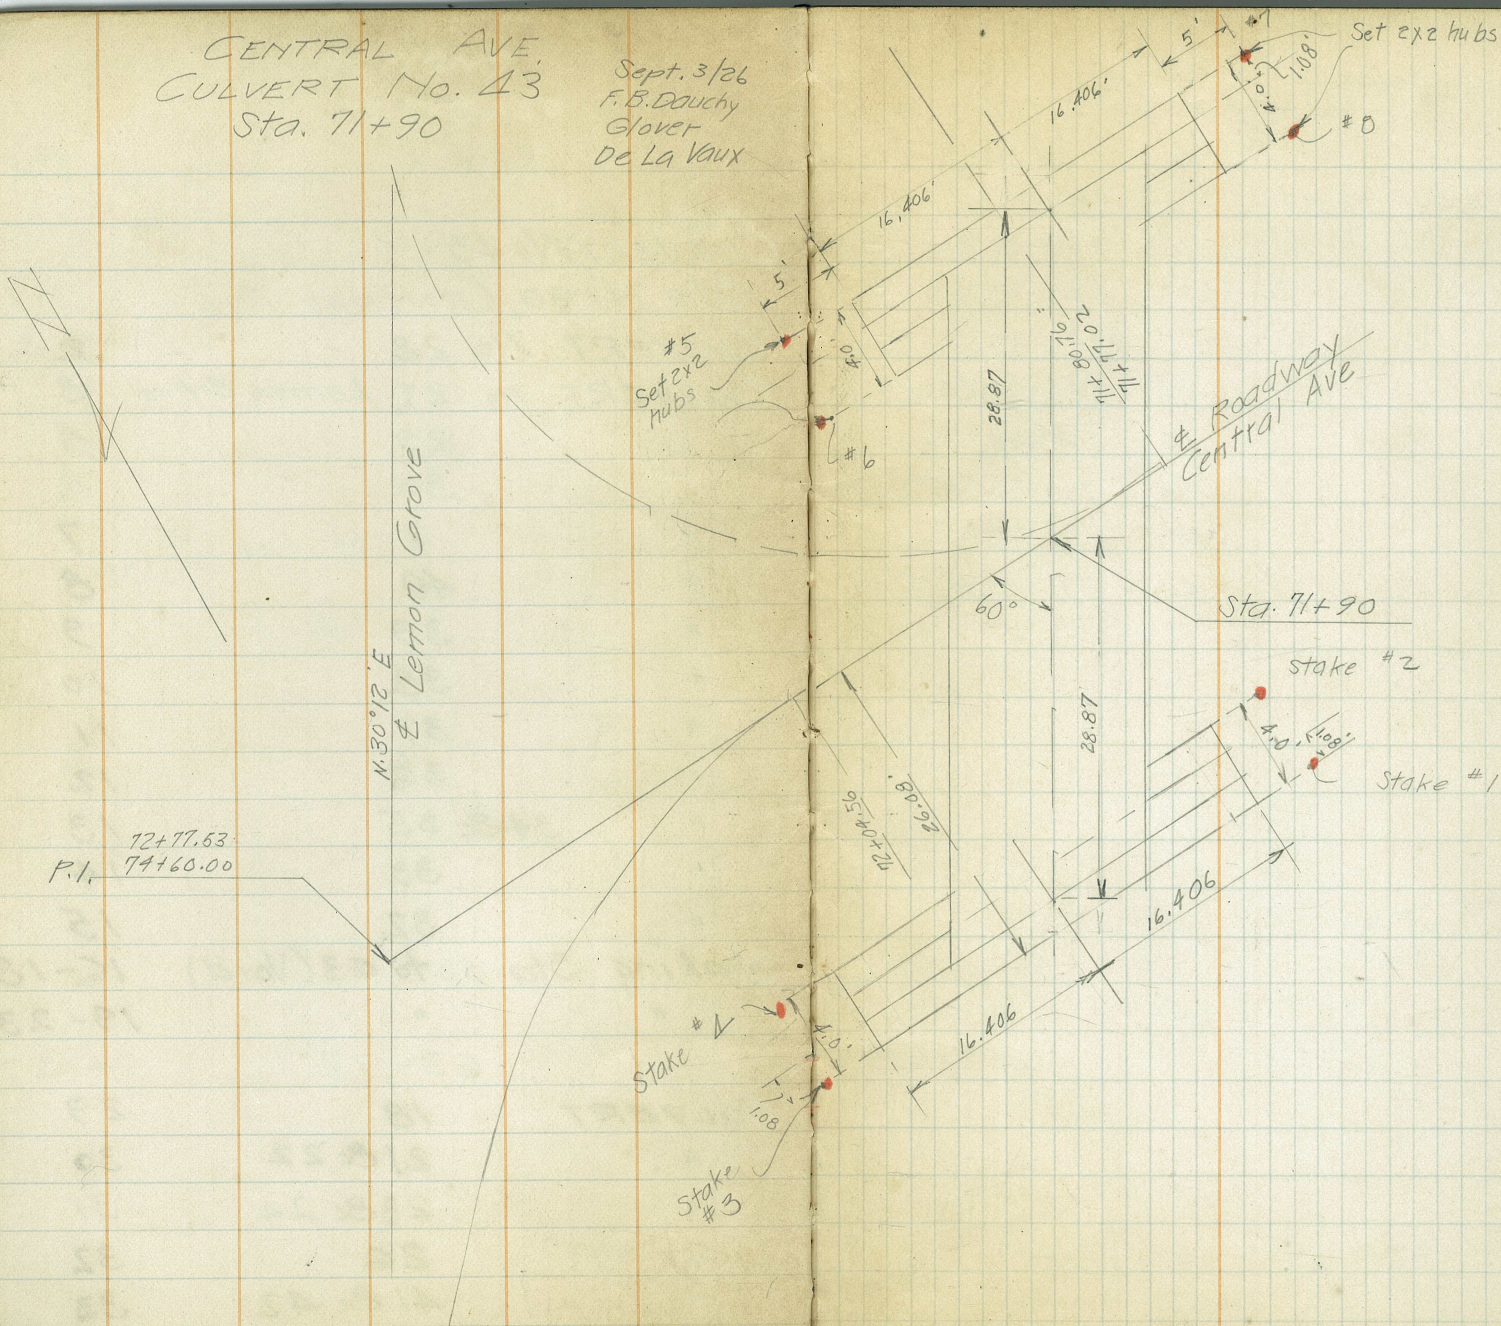 CENTRAL AVE.
CULVERT No. 43
Sta. 71+90
Sept. 3/26
F.B. Dauchy
Glover
De La Vaux
N
℄ Lemon Grove
N.30°12'E
P.I.
72+77.53
74+60.00
#7
Set 2x2 hubs
5'
1.08'
4.0
#8
16.406'
16.406'
5'
#5
Set 2x2
hubs
4.0
#6
28.87
71+80.76
71+77.02
℄ Roadway
Central Ave
60°
Sta. 71+90
28.87
Stake #2
4.0
1.08'
Stake #1
72+04.56
26.08'
16.406
16.406
Stake #4
4.0'
1.08
Stake
#3